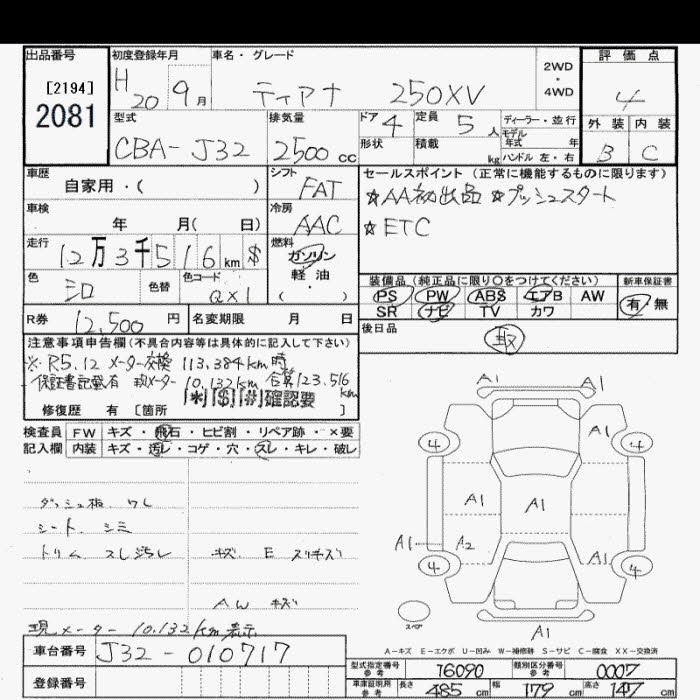 出品番号
[2194]
2081
初度登録年月
H 20 9月
車名・グレード
ティアナ 250XV
2WD
・
4WD
評価点
4
型式
CBA-J32
排気量
2500cc
ドア 4
定員 5人
形状
積載 kg
ディーラー・並行
モデル
年式 年
ハンドル 左・右
外装 内装
B C
車歴
自家用・( )
シフト
FAT
セールスポイント (正常に機能するものに限ります)
☆AA初出品 ☆プッシュスタート
☆ETC
車検
年 月( 日)
冷房
AAC
走行
12万3千516km $
燃料
ガソリン
軽油
・
( )
色
シロ
色替
色コード
QX1
装備品 (純正品に限り〇をつけてください)
PS PW ABS エアB AW
SR ナビ TV カワ
新車保証書
有・無
R券 12,500円
名変期限 月 日
後日品
取
注意事項申告欄(不具合内容等は具体的に記入して下さい)
※R5.12 メーター交換 113,384km時
保証書記載有 現メーター 10,132km 合算123,516km
|*||$||#|確認要
修復歴 有 [箇所 ]
検査員 FW キズ・飛石・ヒビ割・リペア跡・×要
記入欄 内装 キズ・汚レ・コゲ・穴・スレ・キレ・破レ
ダッシュ板 ワレ
シート シミ
トリム スレ汚レ キズ E スリキズ
AW キズ
現メーター 10,132km表示
A1
4 A1 4
A1 A1
A1 A2
4 A1 4
スペア
A1
A-キズ E-エクボ U-凹み W-補修跡 S-サビ C-腐食 XX-交換済
車台番号 J32-010717
登録番号
型式指定番号 参考 16090 類別区分番号 参考 0007
車庫証明用 参考 長さ 485cm 幅 179cm 高さ 147cm